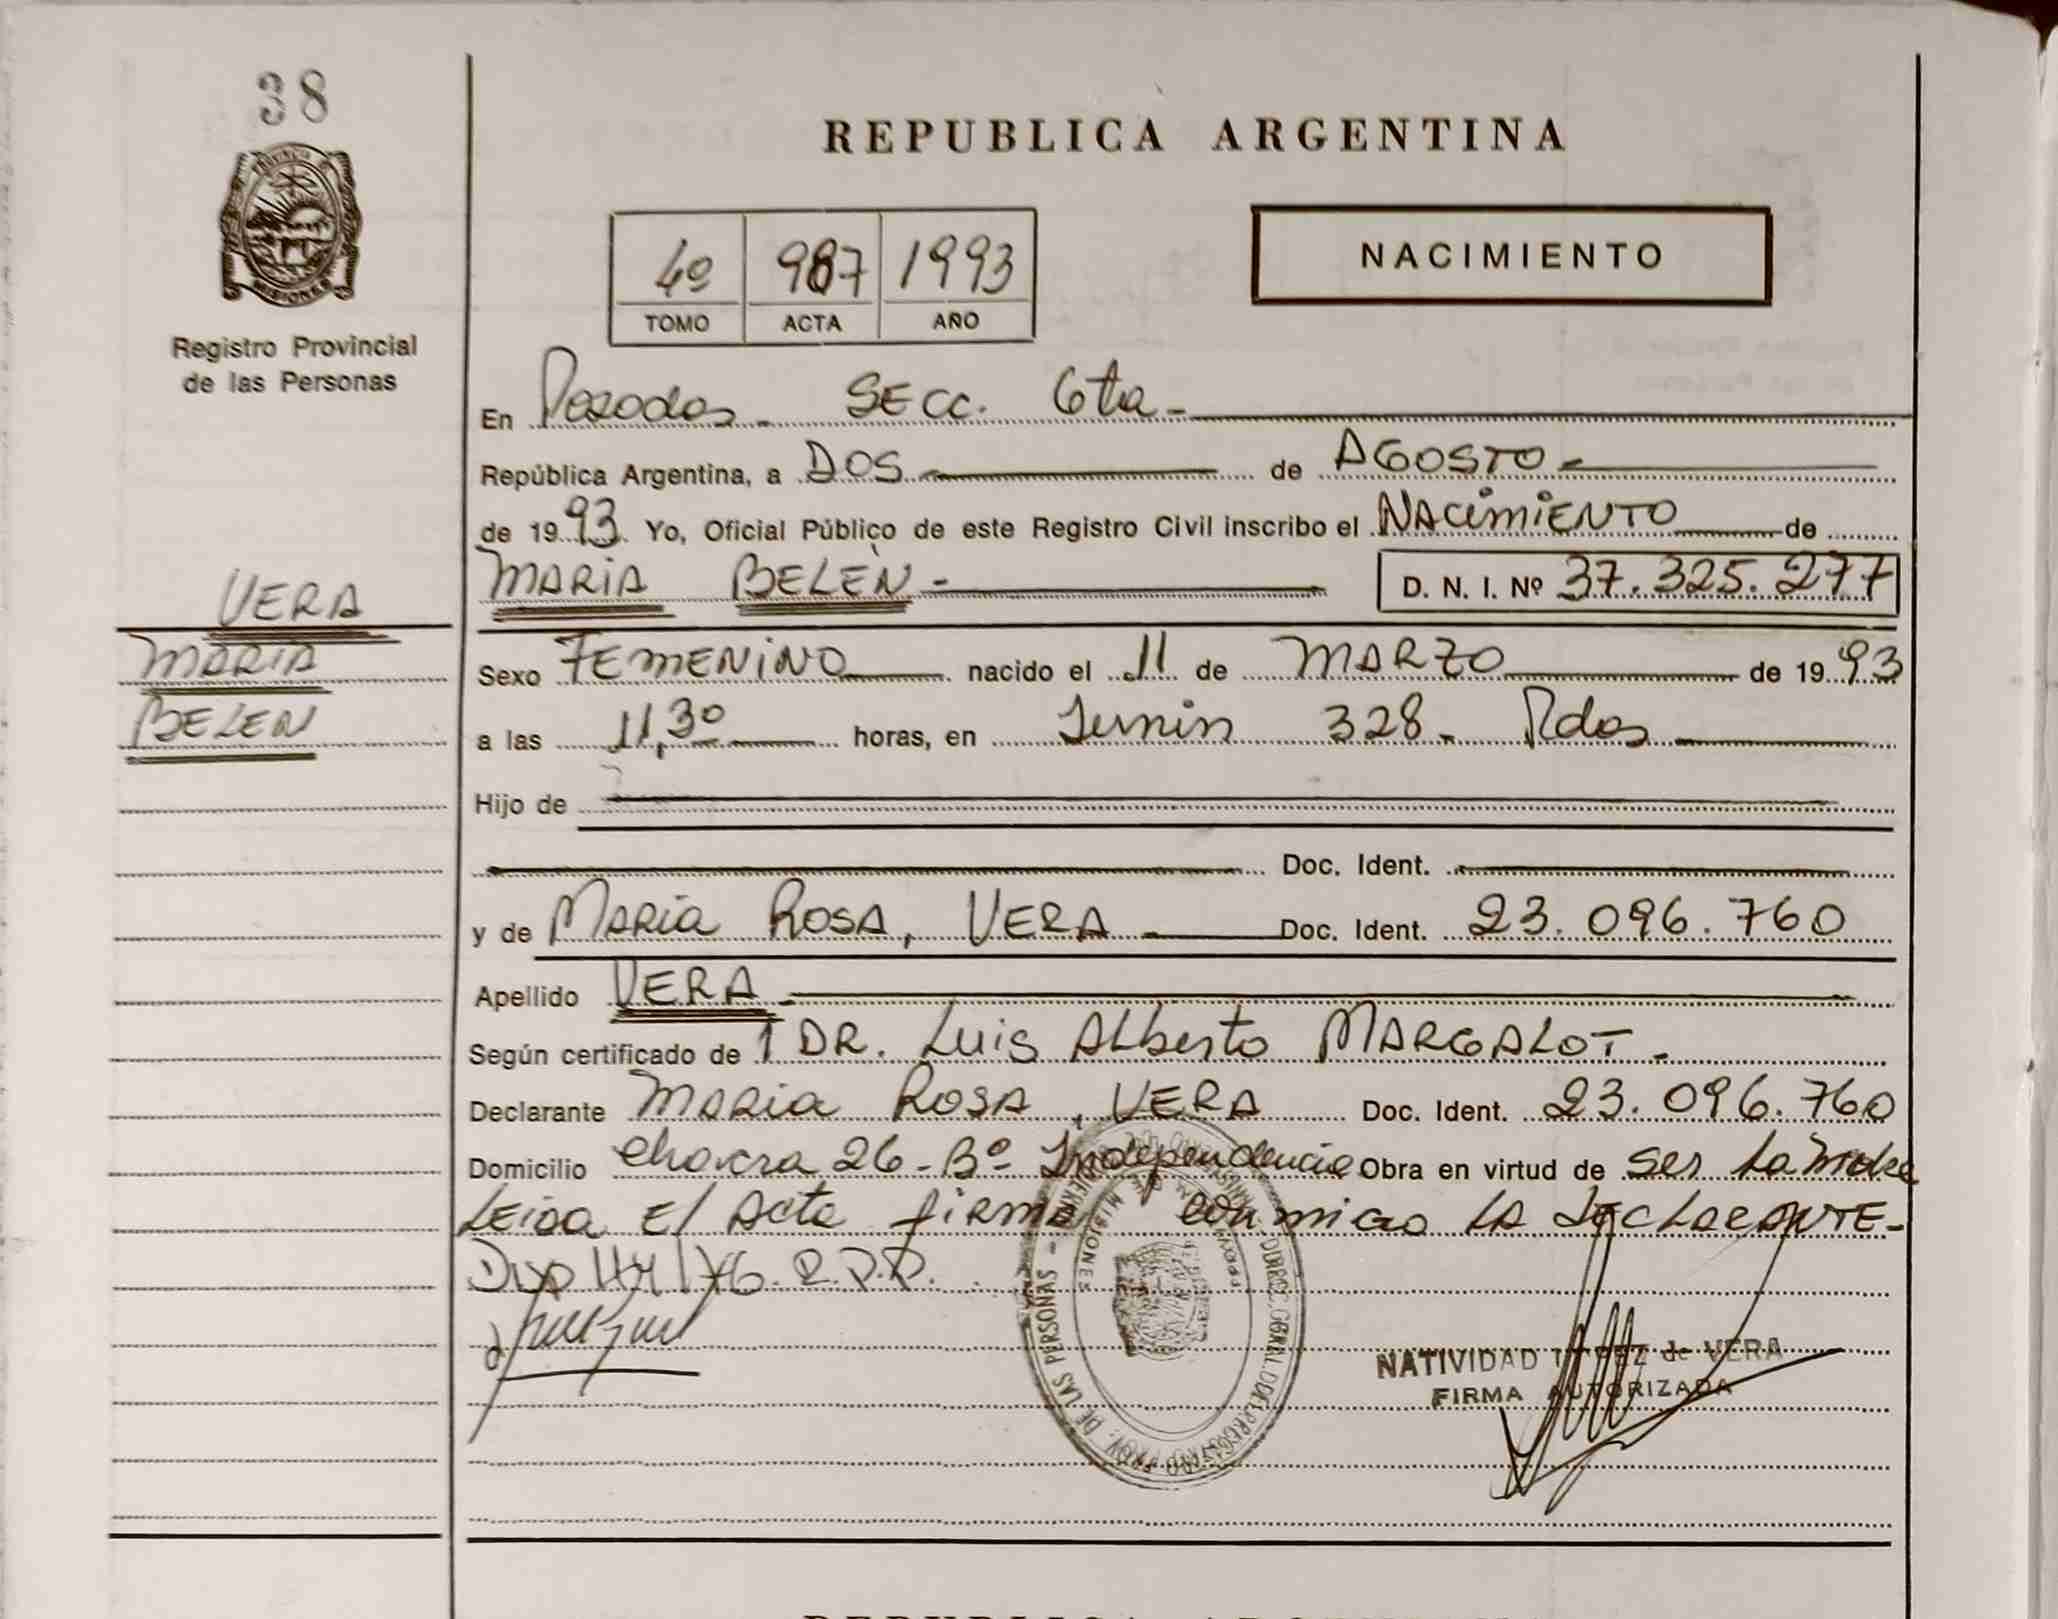 38
REPUBLICA ARGENTINA
PROVINCIA DE
MISIONES
Registro Provincial
de las Personas
4º 987 1993
TOMO ACTA AÑO
NACIMIENTO
En Posadas - SECC. 6ta -
República Argentina, a DOS de AGOSTO -
de 1993 Yo, Oficial Público de este Registro Civil inscribo el NACIMIENTO de
MARIA BELEN - D. N. I. Nº 37.325.277
VERA
MARIA
BELEN
Sexo FEMENINO nacido el 11 de MARZO de 1993
a las 11,30 horas, en Junin 328 - Pdas
Hijo de
Doc. Ident.
y de MARIA ROSA, VERA Doc. Ident. 23.096.760
Apellido VERA -
Según certificado de DR. Luis Alberto MARGALOT -
Declarante MARIA ROSA, VERA Doc. Ident. 23.096.760
Domicilio Chacra 26 - Bº Independencia Obra en virtud de ser la madre
Leida El Acta firma conmigo LA DECLARANTE -
Disp 114/76 R.P.P.
NATIVIDAD LOPEZ de VERA
FIRMA AUTORIZADA